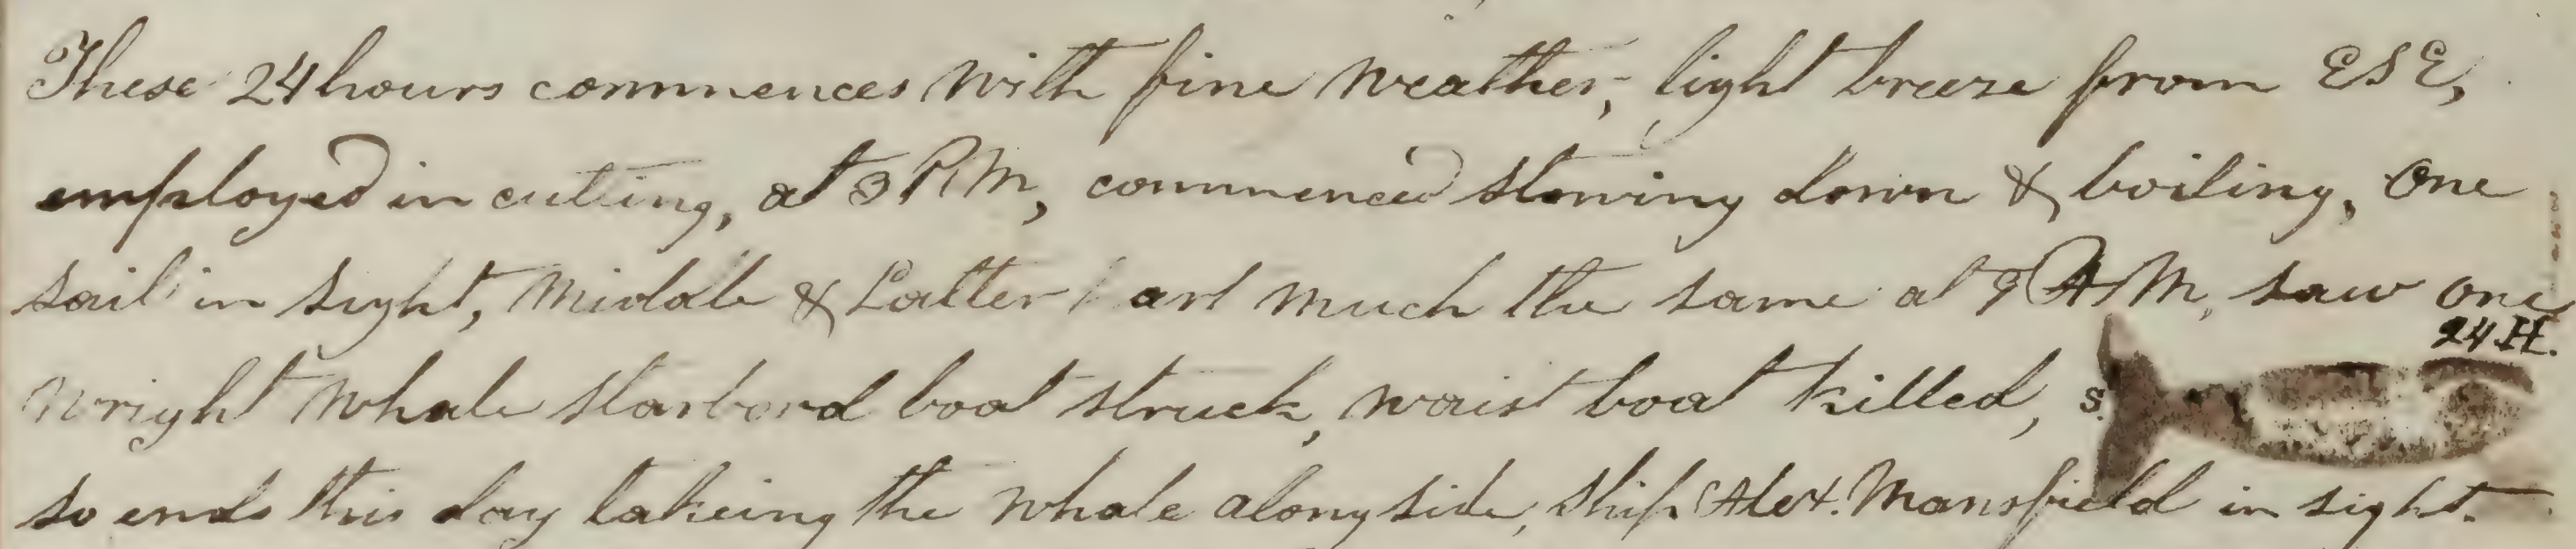 These 24 hours commences with fine weather, light breeze from ESE,
employed in cutting, at 3 P,M, commenced stowing down & boiling, one
sail in sight, Midale & Latter part much the same at 9 A,M, saw one
24 H.
wright whale starbord boat struck, waist boat killed, s.
so ends this day takeing the whale alongside, ship Alex. Mansfield in sight.